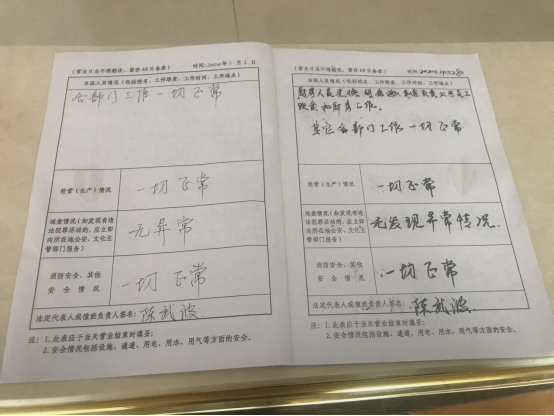 (营业日志不得删改,留存60日备查) 时间:2020年1月1日
当班人员情况(包括姓名、工作职责、工作时间、工作地点)
各部门工作一切正常
经营(生产)情况
一切正常
巡查情况(如发现有违
法犯罪活动的,应立即
向所在地公安、文化主
管部门报告)
无异常
消防安全、其他
安全情况
一切正常
法定代表人或值班负责人签名:陈武波
注:1.此表应于当天营业结束时填妥;
2.安全情况包括设施、通道、用电、用水、用气等方面的安全。
(营业日志不得删改,留存60日备查)
当班人员情况(包括姓名、工作职责、工作时间、工作地点)
其它各部门工作一切正常
经营(生产)情况
一切正常
巡查情况(如发现有违
法犯罪活动的,应立即
向所在地公安、文化主
管部门报告)
无发现异常情况
消防安全、其他
安全情况
一切正常
法定代表人或值班负责人签名:陈武波
注:1.此表应于当天营业结束时填妥;
2.安全情况包括设施、通道、用电、用水、用气等方面的安全。